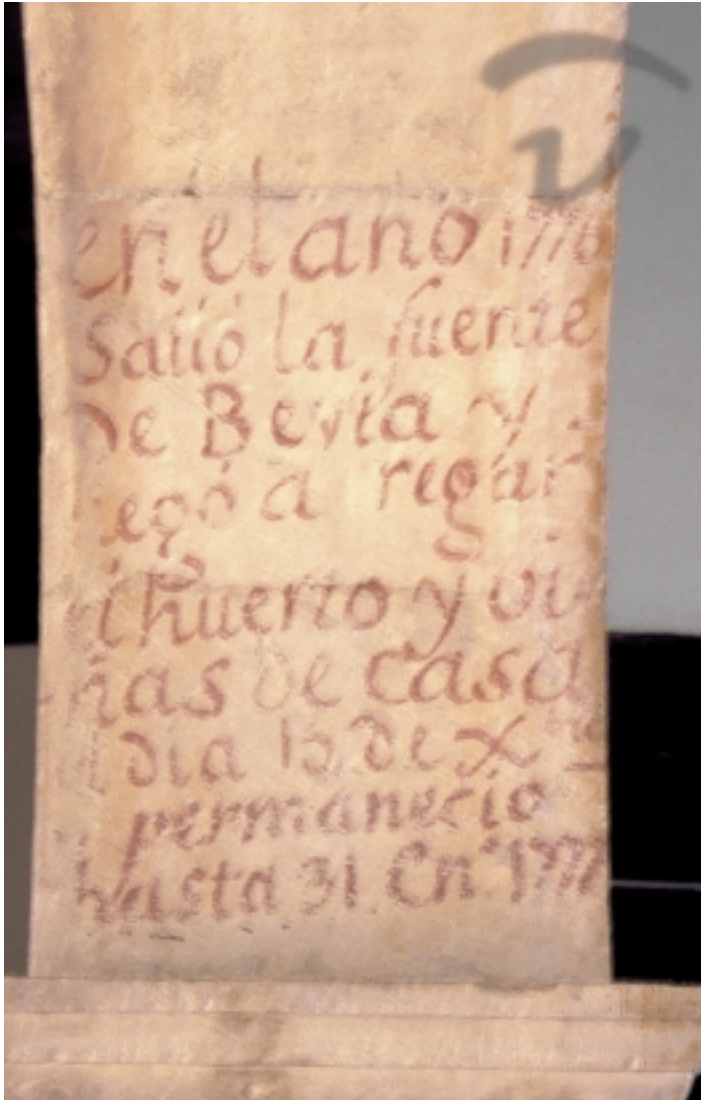 en el año 1776
Salió la fuente
De Bevia y
legó a regar
huerto y vi-
ñas de casa
dia 15 de Xbre
permanecio
hasta 31 Enº 1777